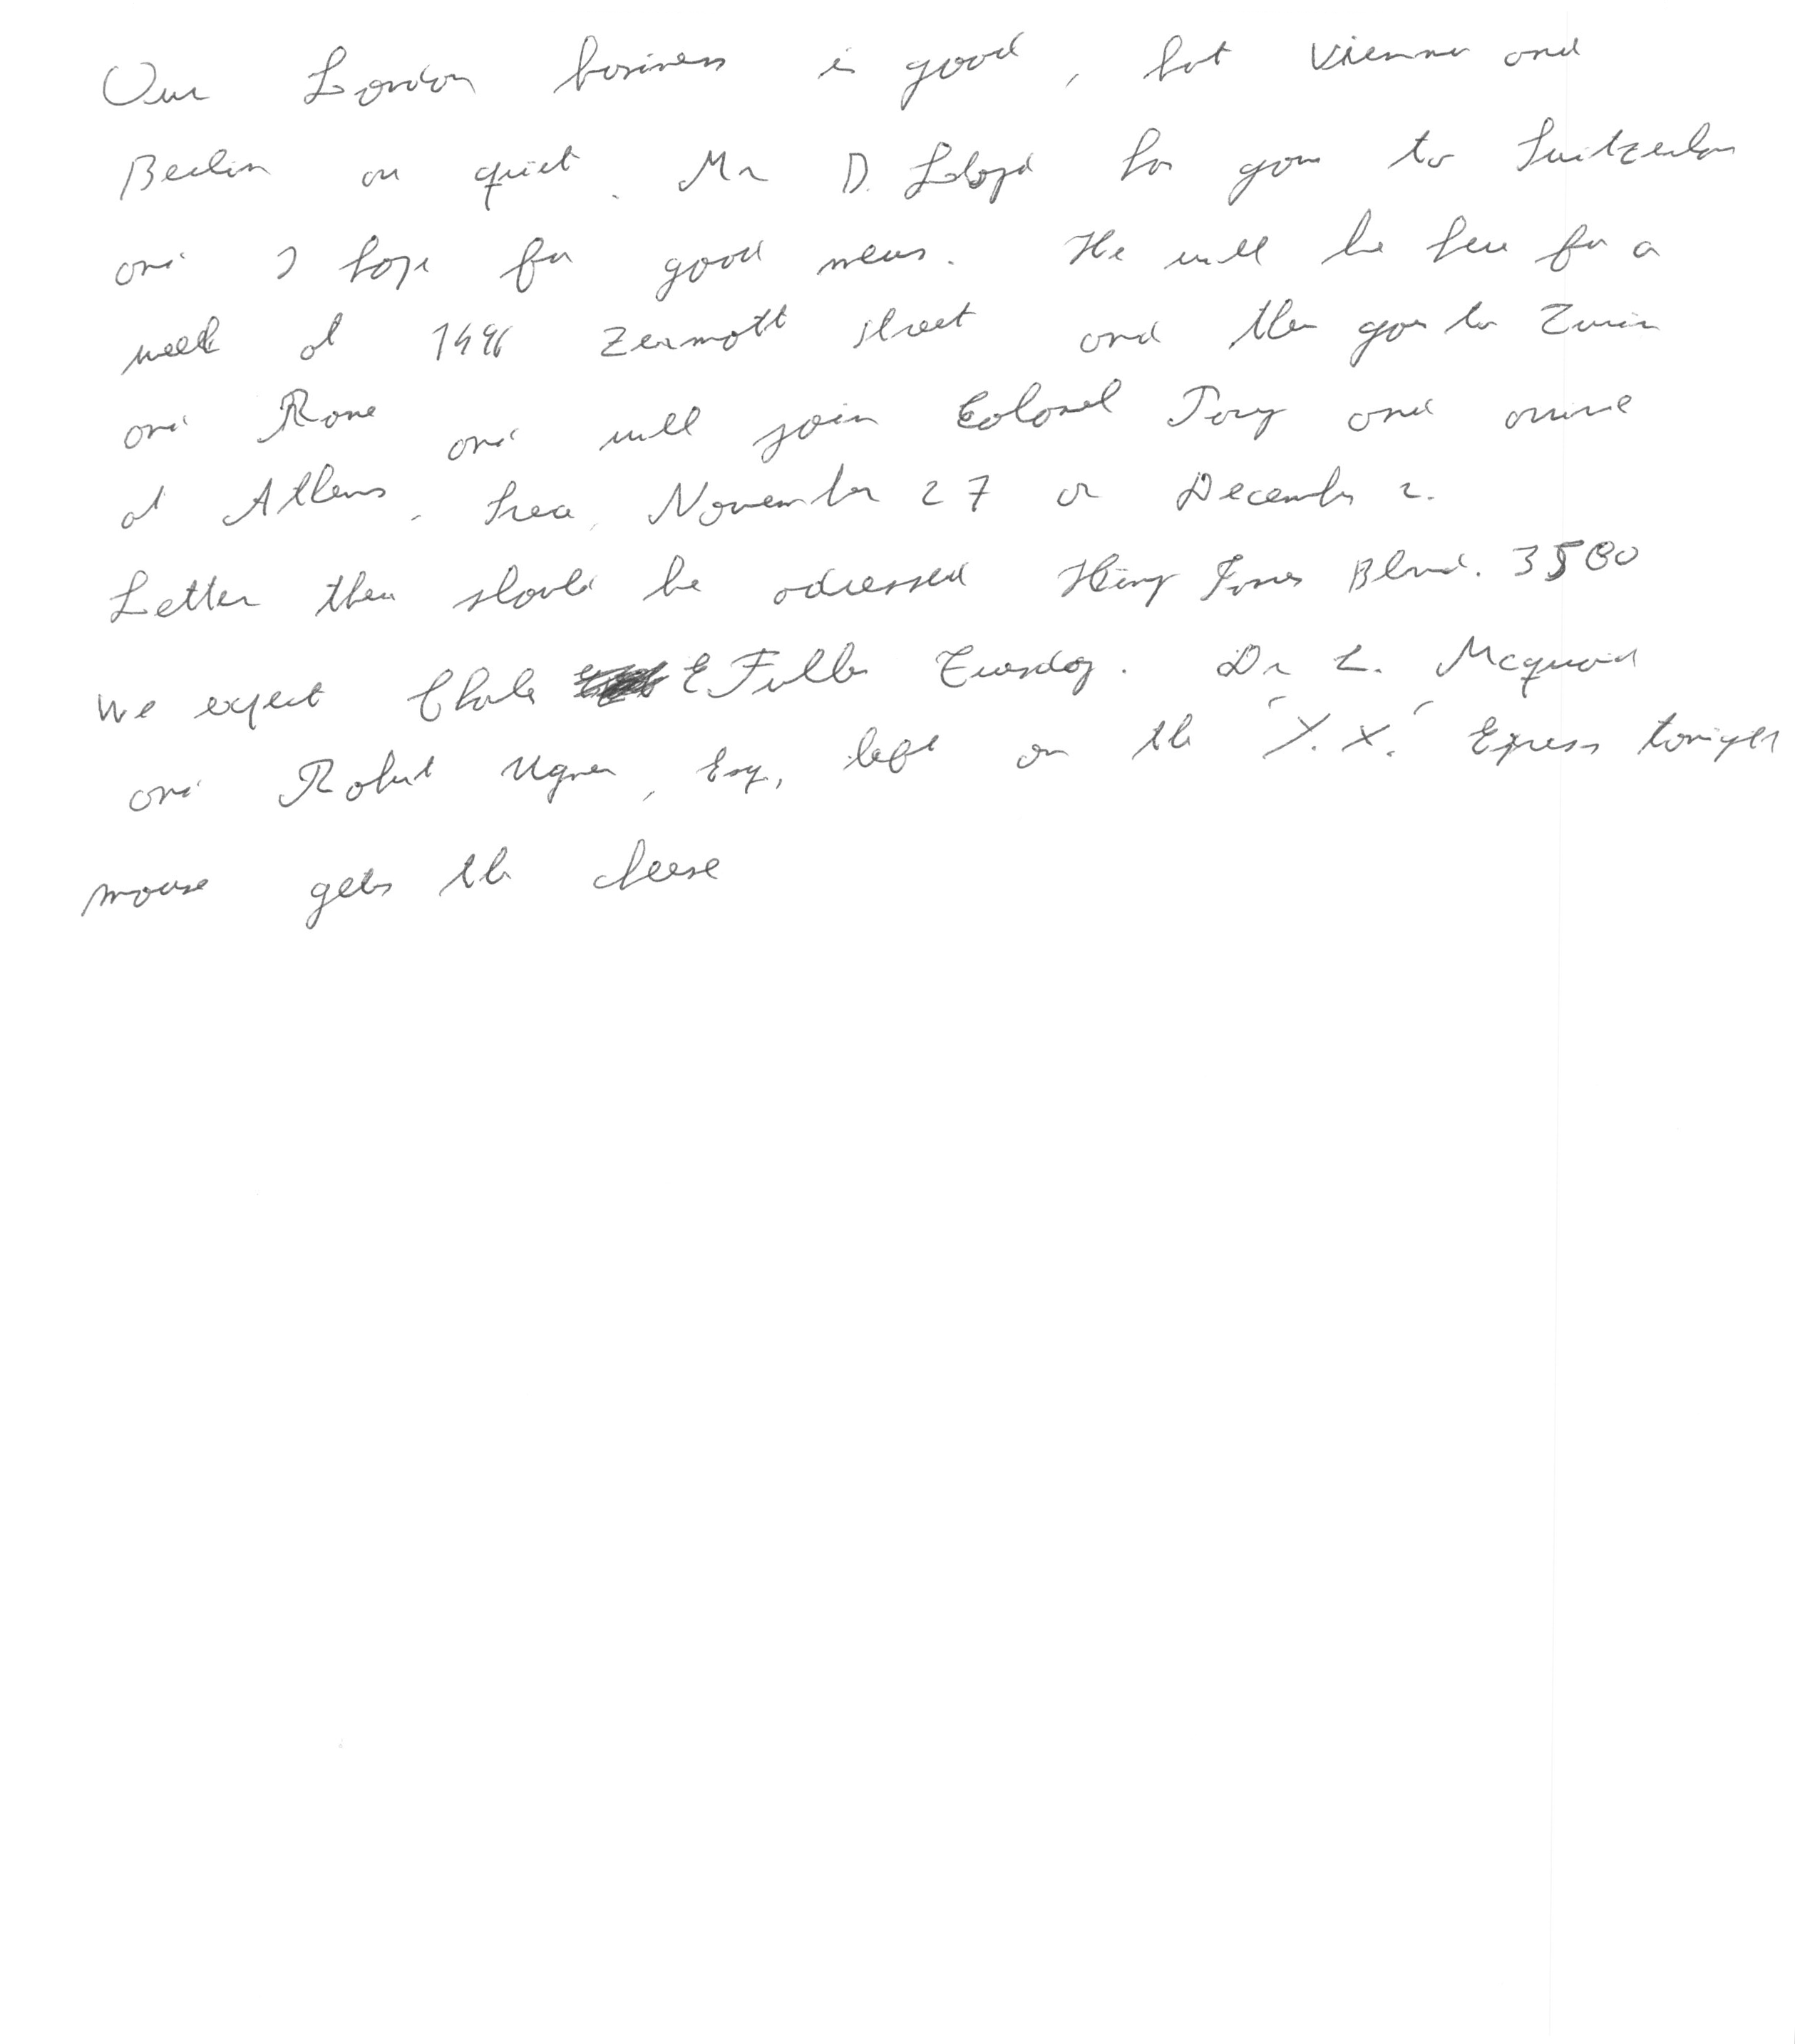 Our London business is good, but Vienna and
Berlin are quiet. Mr D. Lloyd has gone to Switzerland
and I hope for good news. He will be here for a
week at 1496 Zermott street and then goes to Turin
and Rome and will join Colonel Parry and arrive
at Athens, Greece, November 27 or December 2.
Letter there should be adressed King James Blvd. 3580
We expect Charles E Fuller Tuesday. Dr L. Mcquaid
and Robert Unger, Esq., left on the "Y.X." Express tonight
mouse gets the cheese